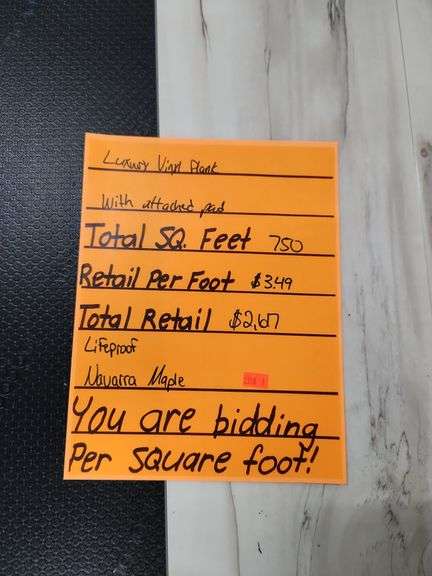 Luxury Vinyl Plank
With attached pad
Total SQ. Feet 750
Retail Per Foot $3.49
Total Retail $2,617
Lifeproof
Navarra Maple
You are bidding
Per square foot!